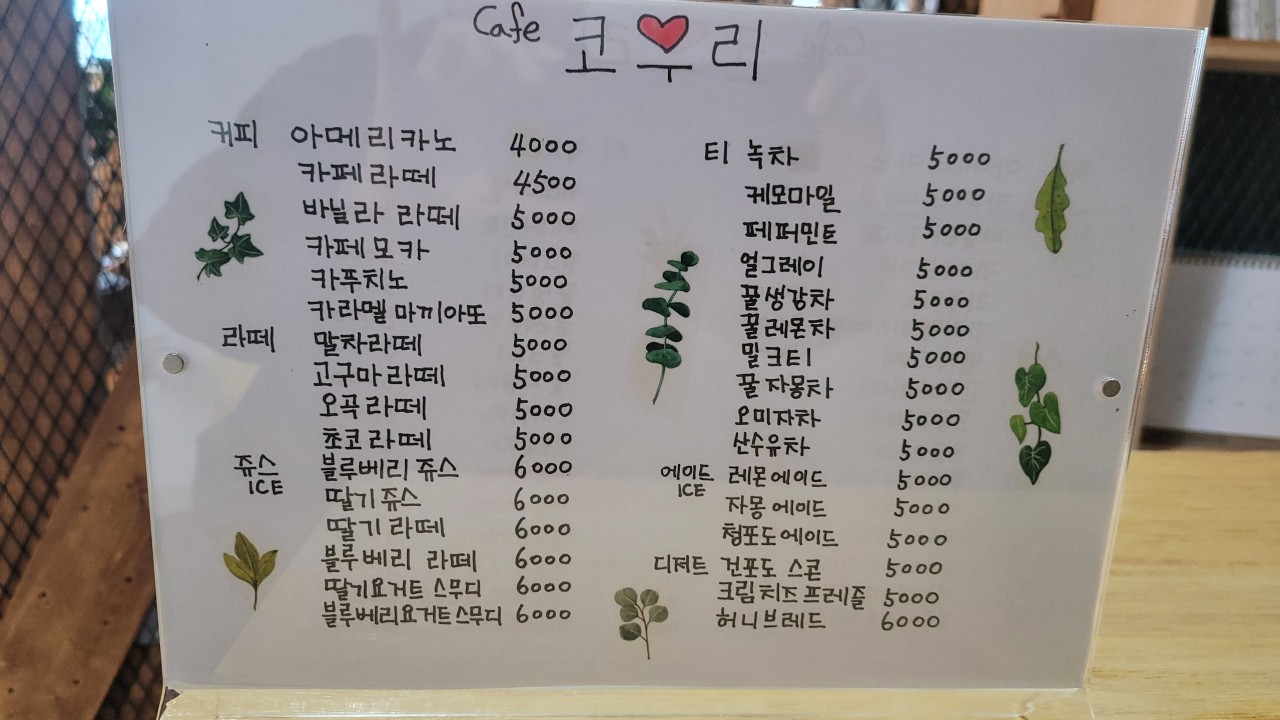 Cafe 코우리
커피 아메리카노 4000
카페라떼 4500
바닐라 라떼 5000
카페모카 5000
카푸치노 5000
카라멜 마끼아또 5000
라떼 말차라떼 5000
고구마라떼 5000
오곡라떼 5000
초코라떼 5000
쥬스 ICE 블루베리쥬스 6000
딸기쥬스 6000
딸기라떼 6000
블루베리 라떼 6000
딸기요거트 스무디 6000
블루베리요거트스무디 6000
티 녹차 5000
케모마일 5000
페퍼민트 5000
얼그레이 5000
꿀생강차 5000
꿀레몬차 5000
밀크티 5000
꿀자몽차 5000
오미자차 5000
산수유차 5000
에이드 ICE 레몬에이드 5000
자몽에이드 5000
청포도에이드 5000
디져트 건포도 스콘 5000
크림치즈프레즐 5000
허니브레드 6000